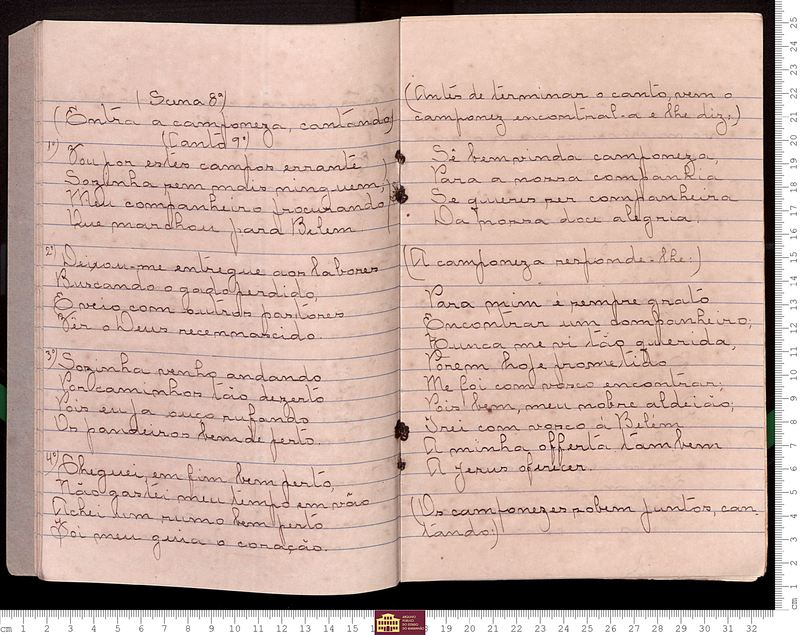 (Sena 8ª)
(Entra a camponeza, cantando)
(Canto 9º)
1º) Vou por estes campos errante
Sozinha sem mais ninguem,
Meu companheiro procurando
Que marchou para Belém
2º) Deixou-me entregue aos labores
Buscando o gado perdido,
E veio com outros pastores
Vêr o Deus recennascido.
3º) Sozinha venho andando
Por caminhos tão dezerto
Pois eu ja ouco rufando
Os pandeiros bem de perto.
4º) Cheguei em fim bem perto,
Não gastei meu tempo em vão
Achei um rumo bem perto
Foi meu guia o coração.
(Antes de terminar o canto, vem o
camponez encontral-a e lhe diz:)
Sê bemvinda camponeza,
Para a nossa companhia
Se queres ser companheira
Da nossa doce alegria.
(A camponeza responde-lhe:)
Para mim é sempre grato
Encontrar um companheiro;
Nunca me vi tão querida,
Porem hoje prometido
Me foi com vosco encontrar;
Pois bem, meu nobre aldeião;
Irei com vosco a Belém
A minha offerta tambem
A Jesus oferecer.
(Os camponezes sobem juntos, can-
tando:)
ARQUIVO
PÚBLICO
DO ESTADO
DO MARANHÃO
cm 1 2 3 4 5 6 7 8 9 10 11 12 13 14 15 1 18 19 20 21 22 23 24 25 26 27 28 29 30 31 32
cm 1 2 3 4 5 6 7 8 9 10 11 12 13 14 15 16 17 18 19 20 21 22 23 24 25